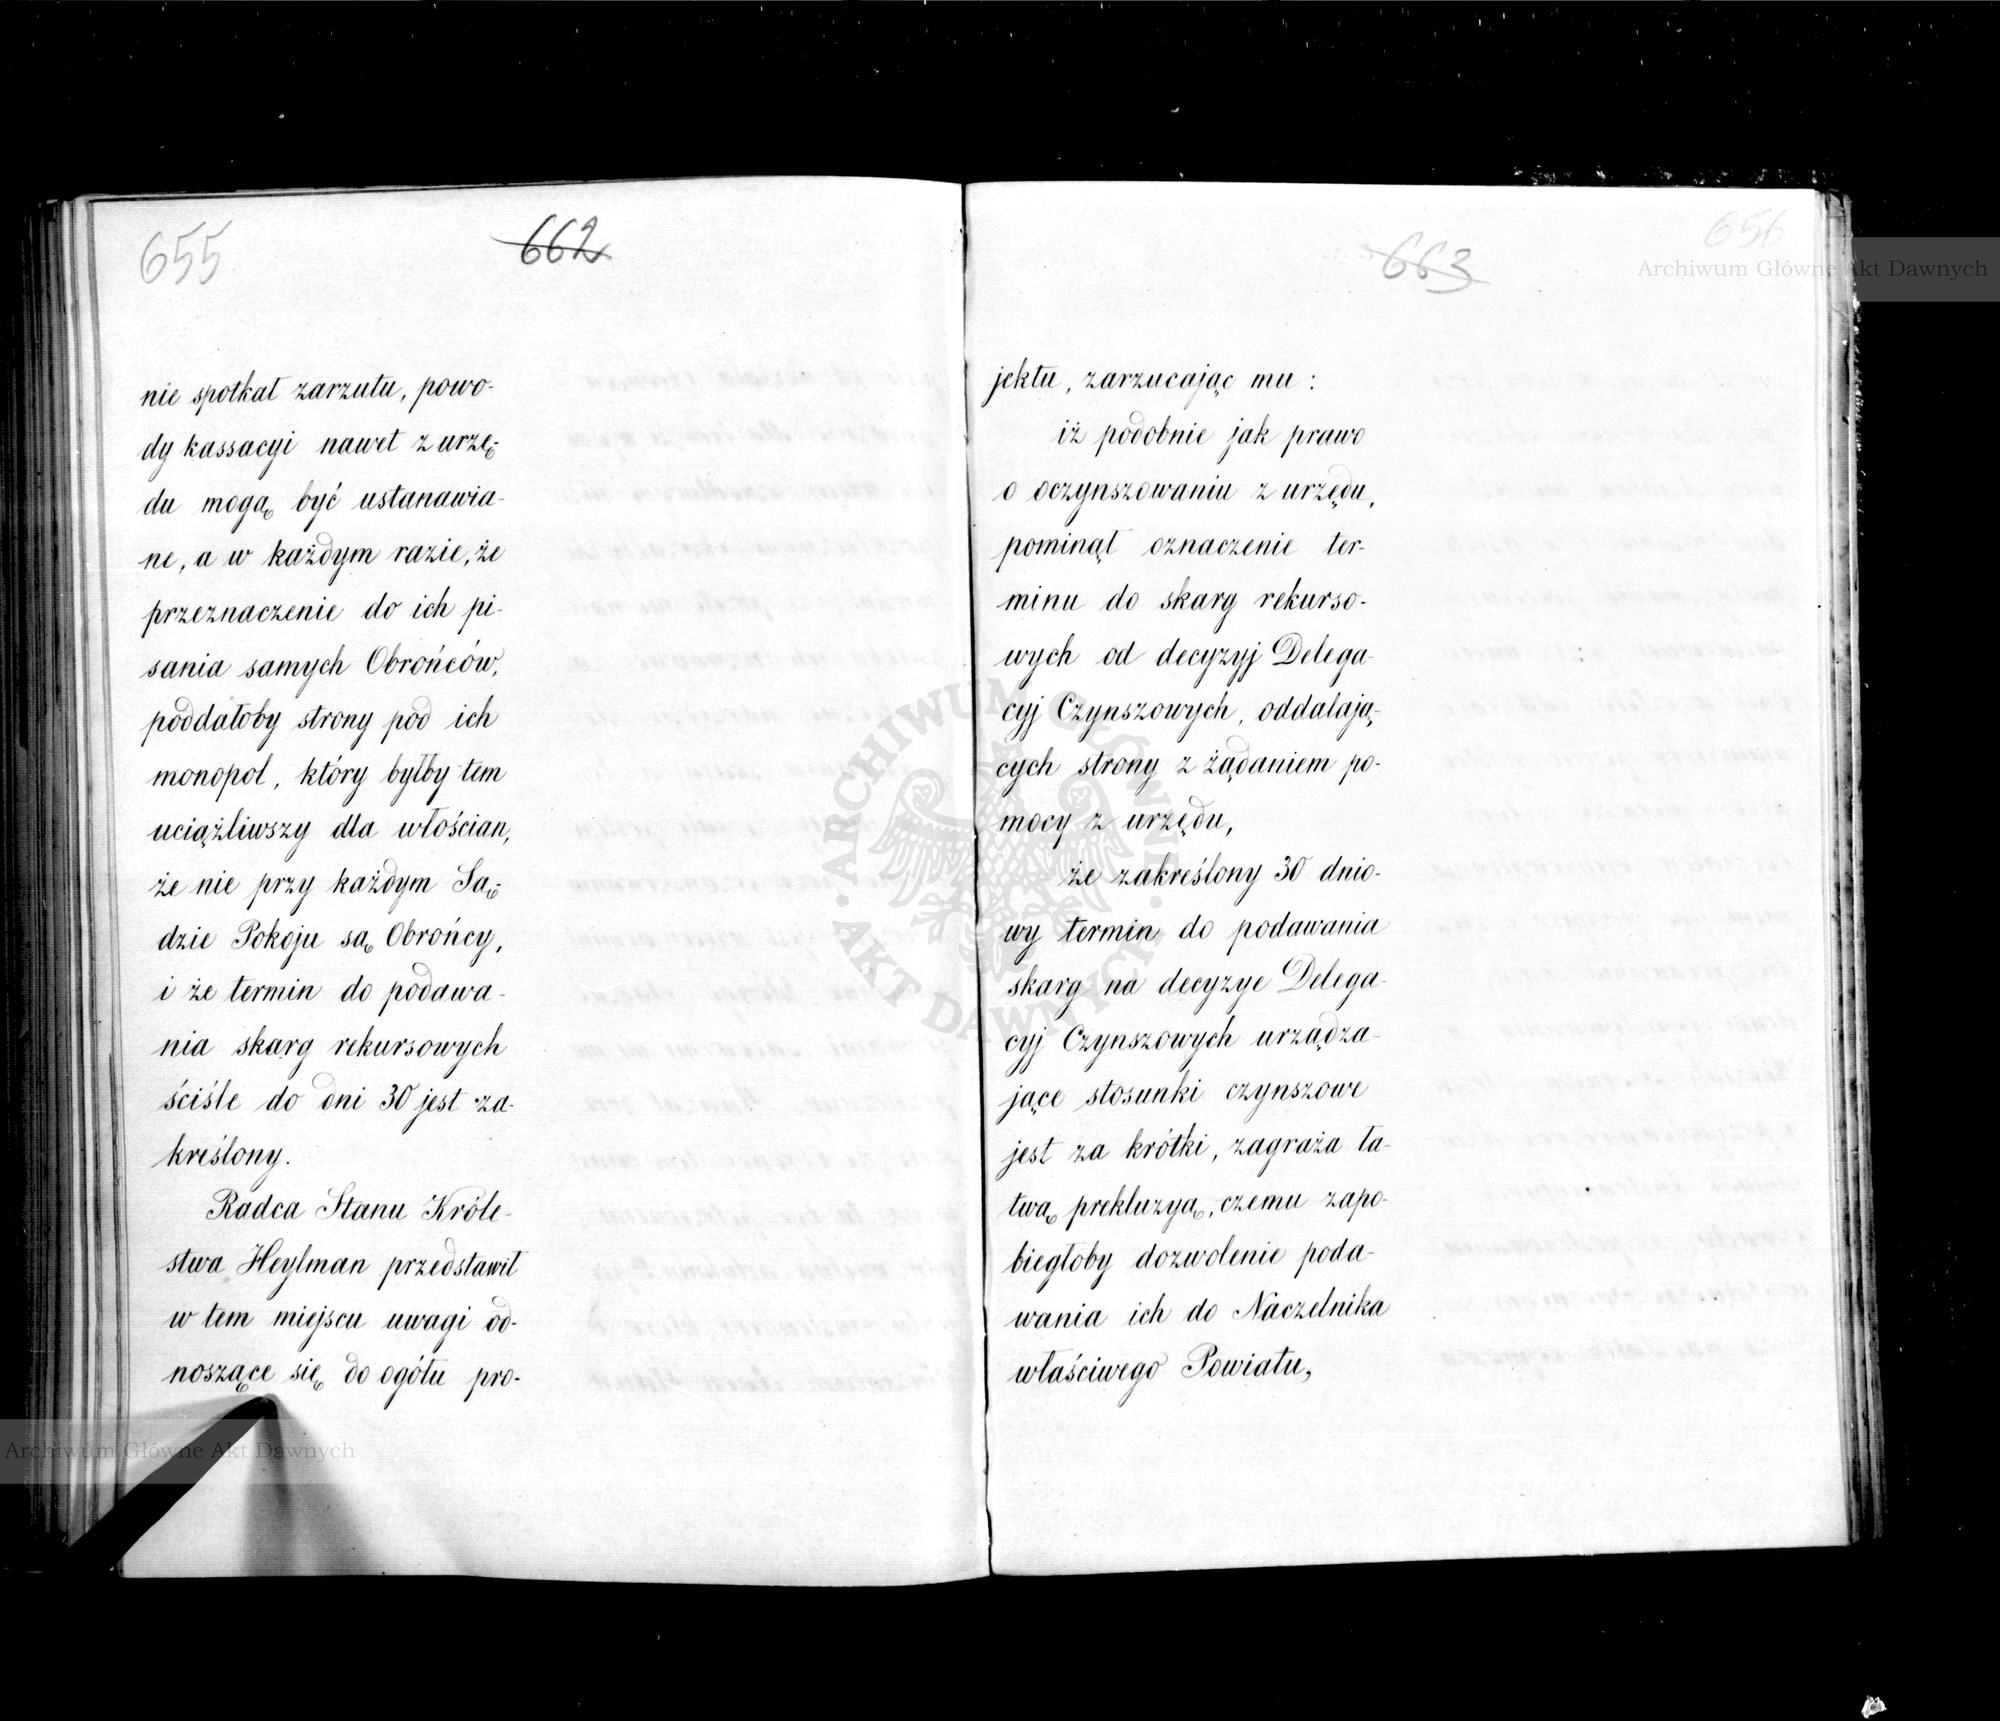 655
662
nie spotkał zarzutu, powo-
dy kassacyi nawet z urzę-
du mogą być ustanawia-
ne, a w każdym razie, że
przeznaczenie do ich pi-
sania samych Obrońców,
poddałoby strony pod ich
monopol, który byłby tem
uciążliwszy dla włościan,
że nie przy każdym Są-
dzie Pokoju są Obrońcy,
i że termin do podawa-
nia skarg rekursowych
ściśle do dni 30 jest za-
kreślony.
Radca Stanu Króle-
stwa Heylman przedstawił
w tem miejscu uwagi od-
noszące się do ogółu pro-
663
656
jektu, zarzucając mu:
iż podobnie jak prawo
o oczynszowaniu z urzędu,
pominął oznaczenie ter-
minu do skarg rekurso-
wych od decyzyj Delega-
cyj Czynszowych, oddalają-
cych strony z żądaniem po-
mocy z urzędu,
że zakreślony 30 dnio-
wy termin do podawania
skarg na decyzye Delega-
cyj Czynszowych urządza-
jące stosunki czynszowe
jest za krótki, zagraża ła-
twą prekluzyą, czemu zapo-
biegłoby dozwolenie poda-
wania ich do Naczelnika
właściwego Powiatu,
Archiwum Główne Akt Dawnych
Archiwum Główne Akt Dawnych
ARCHIWUM GŁÓWNE
AKT DAWNYCH